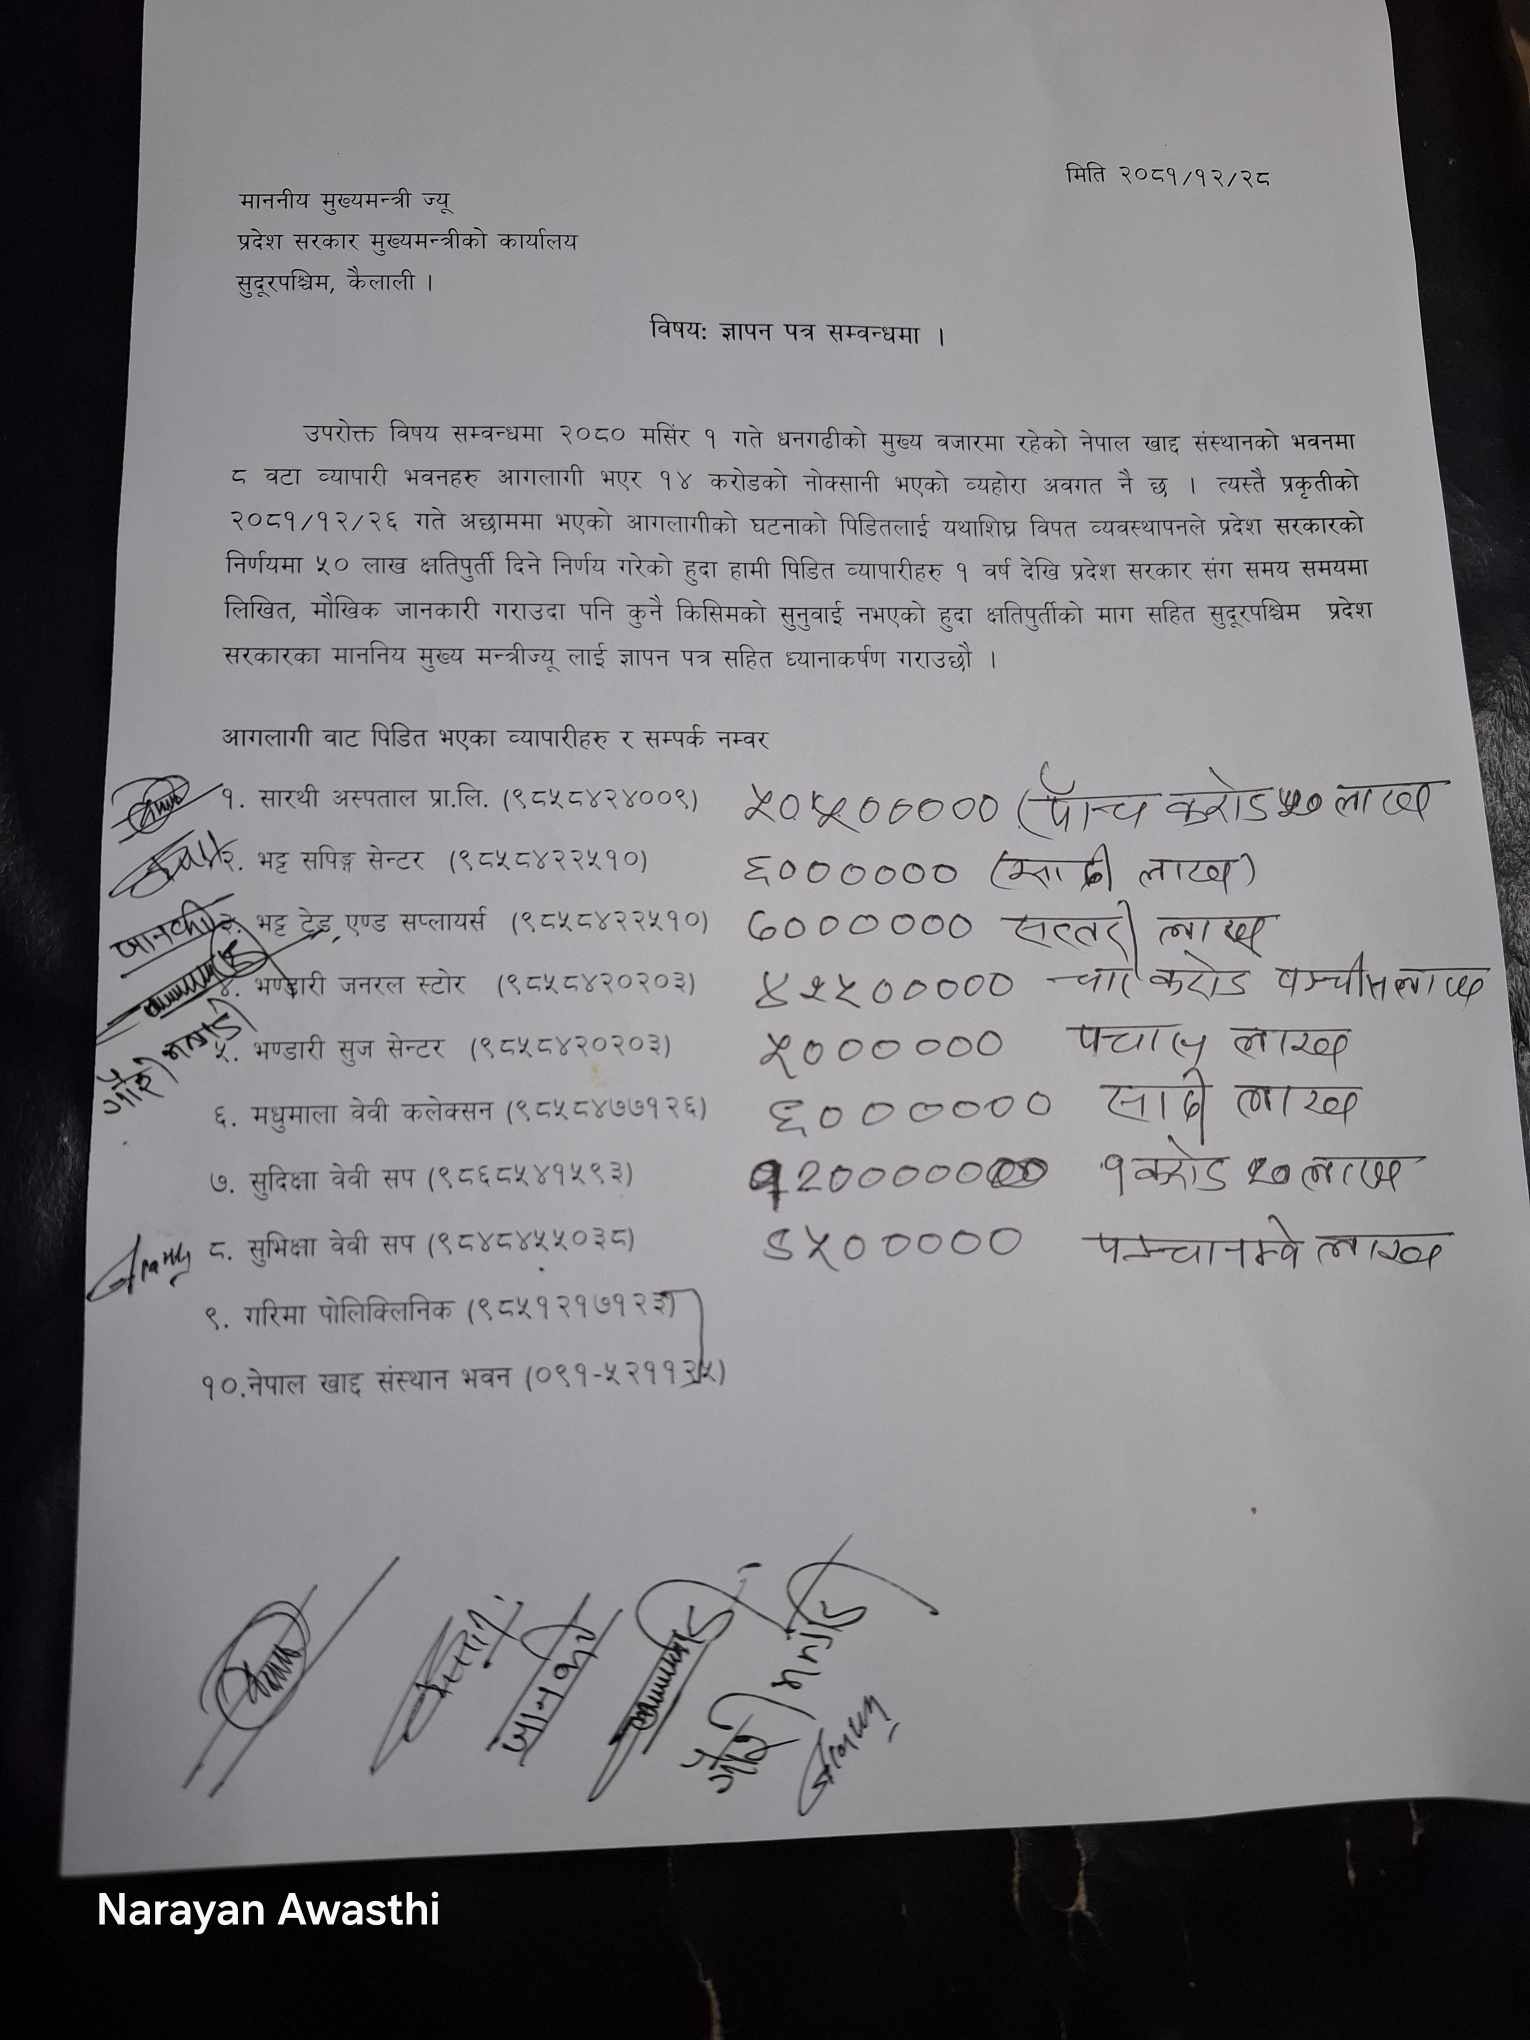 मिति २०८१/१२/२८
माननीय मुख्यमन्त्री ज्यू
प्रदेश सरकार मुख्यमन्त्रीको कार्यालय
सुदूरपश्चिम, कैलाली ।
विषय: ज्ञापन पत्र सम्वन्धमा ।
उपरोक्त विषय सम्वन्धमा २०८० मसिंर १ गते धनगढीको मुख्य वजारमा रहेको नेपाल खाद्द संस्थानको भवनमा
८ वटा व्यापारी भवनहरु आगलागी भएर १४ करोडको नोक्सानी भएको व्यहोरा अवगत नै छ । त्यस्तै प्रकृतीको
२०८१/१२/२६ गते अछाममा भएको आगलागीको घटनाको पिडितलाई यथाशिघ्र विपत व्यवस्थापनले प्रदेश सरकारको
निर्णयमा ५० लाख क्षतिपुर्ती दिने निर्णय गरेको हुदा हामी पिडित व्यापारीहरु १ वर्ष देखि प्रदेश सरकार संग समय समयमा
लिखित, मौखिक जानकारी गराउदा पनि कुनै किसिमको सुनुवाई नभएको हुदा क्षतिपुर्तीको माग सहित सुदूरपश्चिम प्रदेश
सरकारका माननिय मुख्य मन्त्रीज्यू लाई ज्ञापन पत्र सहित ध्यानाकर्षण गराउछौ ।
आगलागी वाट पिडित भएका व्यापारीहरु र सम्पर्क नम्वर
१. सारथी अस्पताल प्रा.लि. (९८५८४२४००९) ५०५००००० (पाँन्च करोड ५० लाख
२. भट्ट सपिङ्ग सेन्टर (९८५८४२२५१०) ६०००००० (साठी लाख)
जानकी ३. भट्ट ट्रेड एण्ड सप्लायर्स (९८५८४२२५१०) ७०००००० सत्तरी लाख
४. भण्डारी जनरल स्टोर (९८५८४२०२०३) ४२५००००० चार करोड पच्चीस लाख
गौरी भण्डारी ५. भण्डारी सुज सेन्टर (९८५८४२०२०३) ५०००००० पचास लाख
६. मधुमाला वेवी कलेक्सन (९८५८४७७१२६) ६०००००० साठी लाख
७. सुदिक्षा वेवी सप (९८६८५४१५९३) १२०००००० १ करोड २० लाख
८. सुभिक्षा वेवी सप (९८४८४५५०३८) ९५००००० पन्चानब्बे लाख
९. गरिमा पोलिक्लिनिक (९८५१२१७१२३)
१०.नेपाल खाद्द संस्थान भवन (०९१-५२११२५)
जानकी
गौरी भण्डारी
Narayan Awasthi